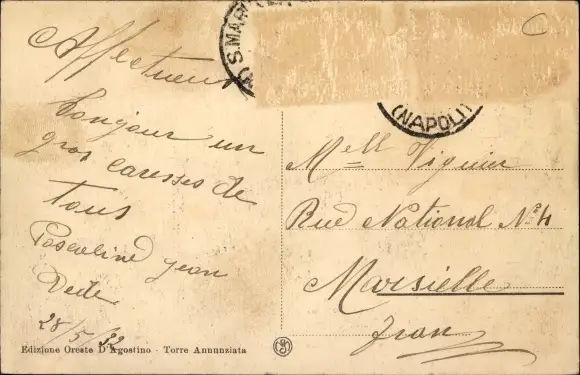 Affectueux
bonjour un
gros caresses de
tous
Pascaline Jean
Dede
28/5/32
Edizione Oreste D'Agostino - Torre Annunziata
(S. MAR
(NAPOLI)
Mell Viguier
Rue National N° 4
Marsielle
Fran